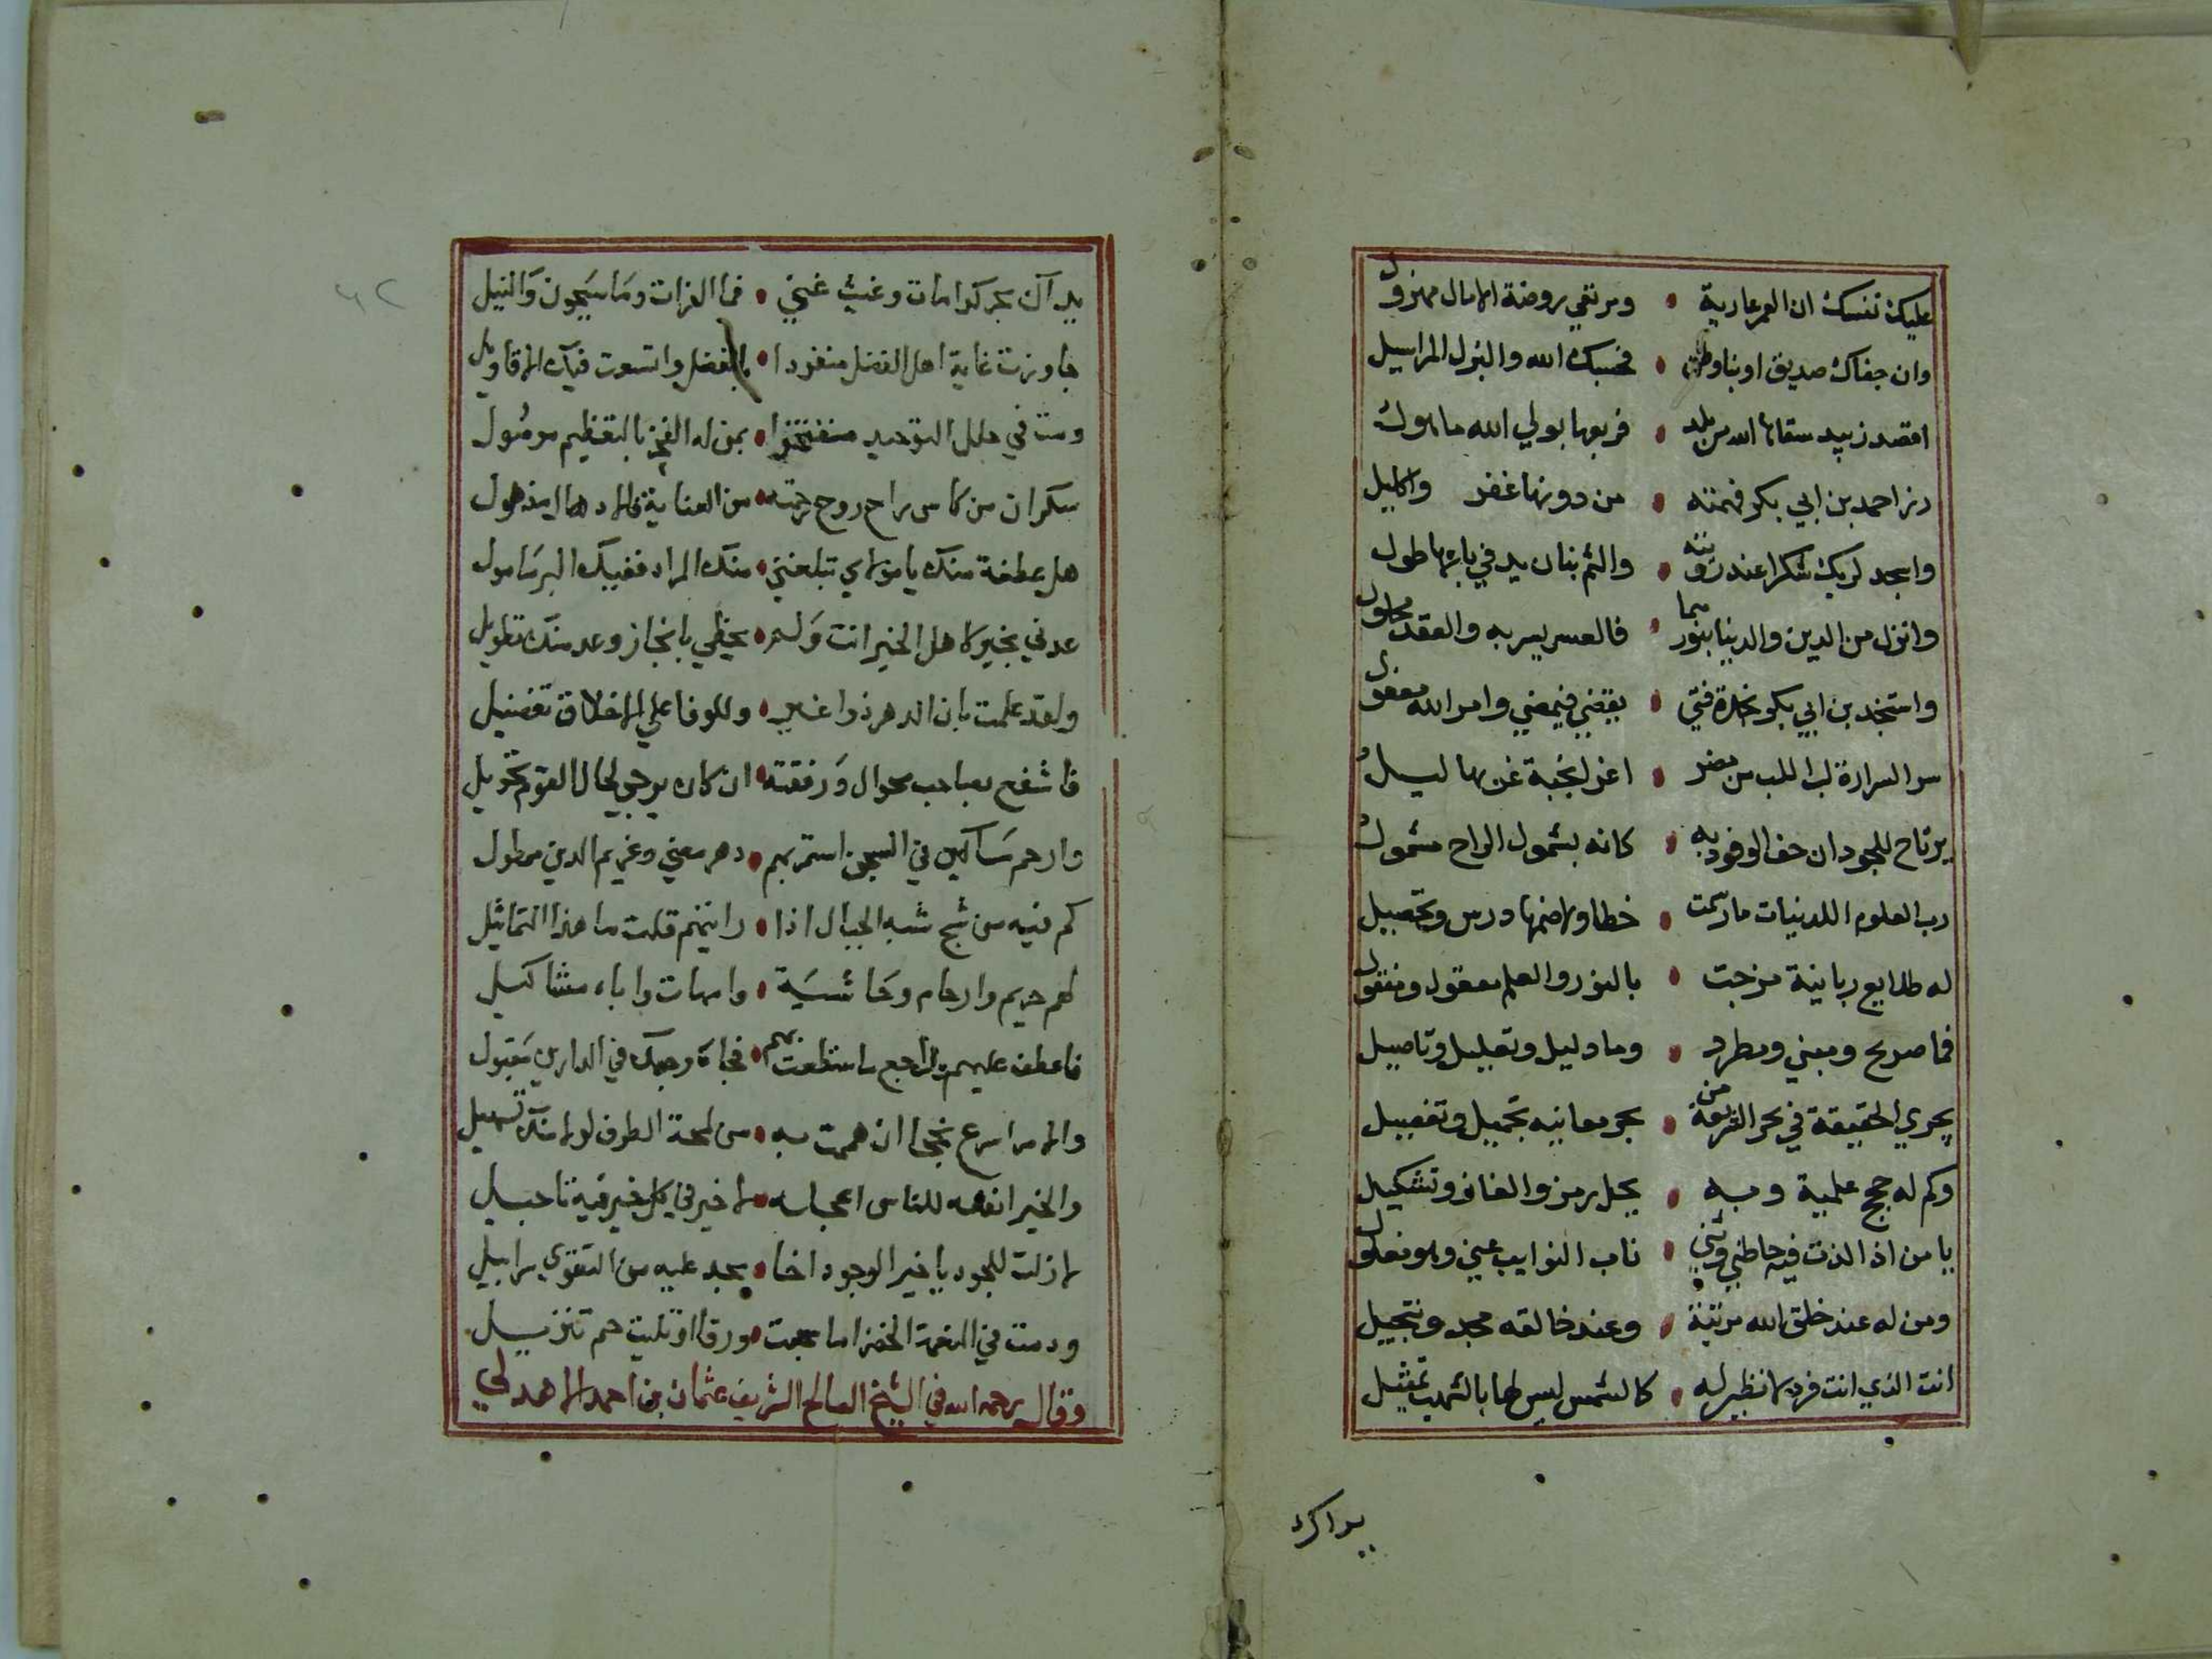 عليك نفسك ان العمر عارية • ومرتقي روضة الامال مهزول
وان جفاك صديق او نبا وطن • فحسبك الله والبزل المراسيل
اقصد زبيد سقاها الله من بلد • فربعها بولي الله ماهول
وزر احمد بن ابي بكر فهمته • من دونها غفر واكليل
واسجد لربك شكرا عند رؤيته • والثم بنان يد في باعها طول
وانزل من الدين والدنيا بنورهما • فالعسر يسر به والعقد محلول
واستنجد بن ابي بكر نجدة فتي • يقضي فيمضي وامر الله مفعول
سر السرارة لب اللب من مضر • اغر لنخبة غر بهاليل
يرتاح للجود ان حف الوفود به • كانه بشمول الراح مشمول
رب العلوم اللدنيات ما رسمت • خطا ولا ضمها درس وتحصيل
له طلايع ربانية مزجت • بالنور والعلم معقول ومنقول
فما صريح ومبني ومطرد • وما دليل وتعليل وتاصيل
يجري الحقيقة في بحر الشريعة من • بحر معانيه تجميل وتفصيل
وكم له حجج علمية وبه • يحل رمز والغاز وتشكيل
يا من اذا لذت فيه حاطني وثني • ناب النوايب عني وهو مفلول
ومن له عند خلق الله مرتبة • وعند خالقه مجد وتبجيل
انت الذي انت فرد لا نظير له • كالشمس ليس لها بالشهب تمثيل
يداك
يداك بحر كرامات وغيث غني • فما الفرات وما سيحون والنيل
جاوزت غاية اهل الفضل منفردا • بالفضل واتسعت فيك الاقاويل
ومت في حلل التوحيد مفتخرا • بمن له الفخر بالتعظيم موصول
سكران من كاس راح روح رحمته • من العناية
هل عطفة منك يا مولاي تبلغني • منك المراد ففيك البر مامول
عدني بخير لاهل الخير انت ولم • يحظي بانجاز وعد منك تطويل
ولقد علمت بان الدهر ذو اغير • وللوفا علي الاخلاق تفضيل
فاشفع لصاحب ورفقته • ان كان يرجي لحال القوم تحويل
وارحم مساكين في السجن استمر بهم • دهر معني وغريم الدين ممطول
كم فيه من شج شبه الجبال اذا • رايتهم قلت ما هذا التماثيل
لهم حريم وارحام وحاشية • وامهات واباء مشاكيل
فاعطف عليهم واجمع ما استطعت بهم • فجاه وجهك في الدارين مقبول
والامر اسرع نجحا ان هممت به • من لمحة الطرف لولا منك تسهيل
والخير انفعه للناس اعجله • لا خير في كل خير فيه تاجيل
لا زلت للجود يا خير الوجود اخا • مجد عليه من التقوي سرابيل
ودمت في النعمة الخضرا ما سجعت • ورقا او تليت حم تنزيل
وقال رحمه الله في الشيخ الصالح الشريف عثمان بن احمد الاهدلي
٦٢